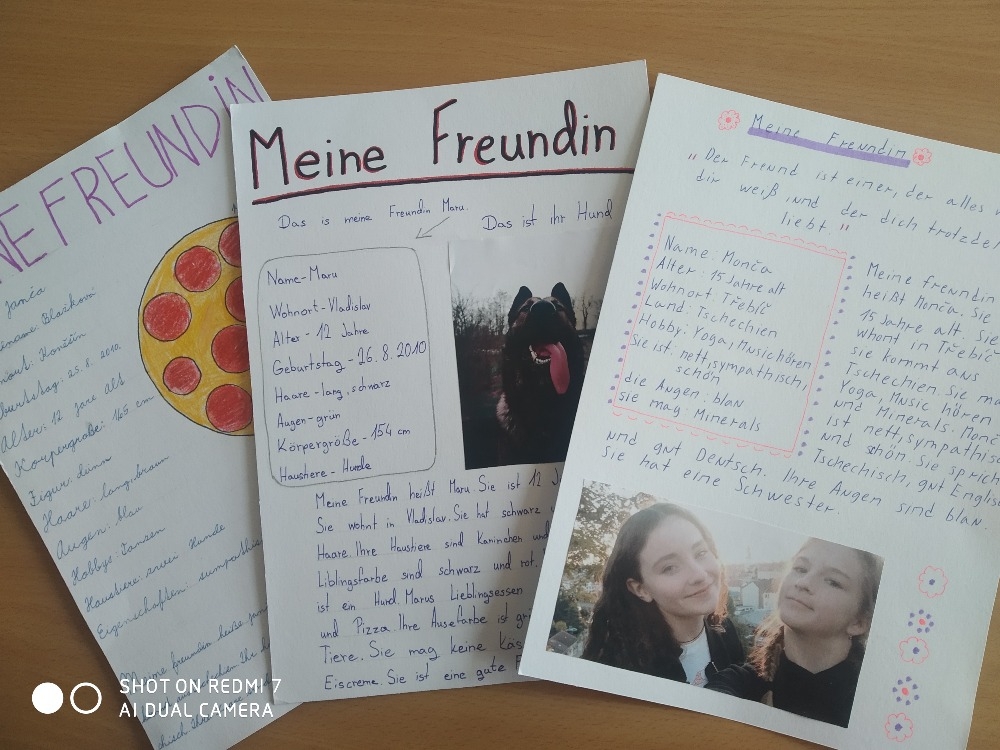 NE FREUNDIN
Janča
Blažková
Burtstag: 25. 8. 2010
Alter: 12 Jare alt
Körpergröße: 165 cm
Figur: dünn
Haare: lang, braun
Augen: blau
Hobbys: Tanzen
Haustiere: zwei Hunde
Eigenschaften: sumpathis
Meine Freundin
Das is meine Freundin Maru.
Das ist ihr Hund
Name-Maru
Wohnort-Vladislav
Alter - 12 Jahre
Geburtstag - 26. 8. 2010
Haare - lang, schwarz
Augen-grün
Körpergröße - 154 cm
Haustiere - Hunde
Meine Freundin heißt Maru. Sie ist 12 J
Sie wohnt in Vladislav. Sie hat schwarz
Haare. Ihre Haustiere sind Kaninchen und
Liblingsfarbe sind schwarz und rot.
ist ein Hund. Marus Lieblingsessen
und Pizza. Ihre Ausefarbe ist gr
Tiere. Sie mag keine Käs
Eiscreme. Sie ist eine gute F
Meine Freundin
"Der Freund ist einer, der alles v
dir weiß, und der dich trotzde
liebt."
Name: Monča
Alter: 15 Jahre alt
Wohnort: Třebíč
Land: Tschechien
Hobby: Yoga, Musichören
Sie ist: nett, sympathisch,
schön
die Augen: blau
sie mag: Minerals
Meine freundin
heißt Monča. Sie
15 Jahre alt. Sie
whont in Třebíč
sie kommt aus
Tschechien. Sie ma
Yoga, Music hören
und Minerals. Monč
ist nett, sympathisc
und schön. Sie sprich
Tschechisch, gut Englis
und gut Deutsch. Ihre Augen sind blau.
Sie hat eine Schwester.
SHOT ON REDMI 7
AI DUAL CAMERA